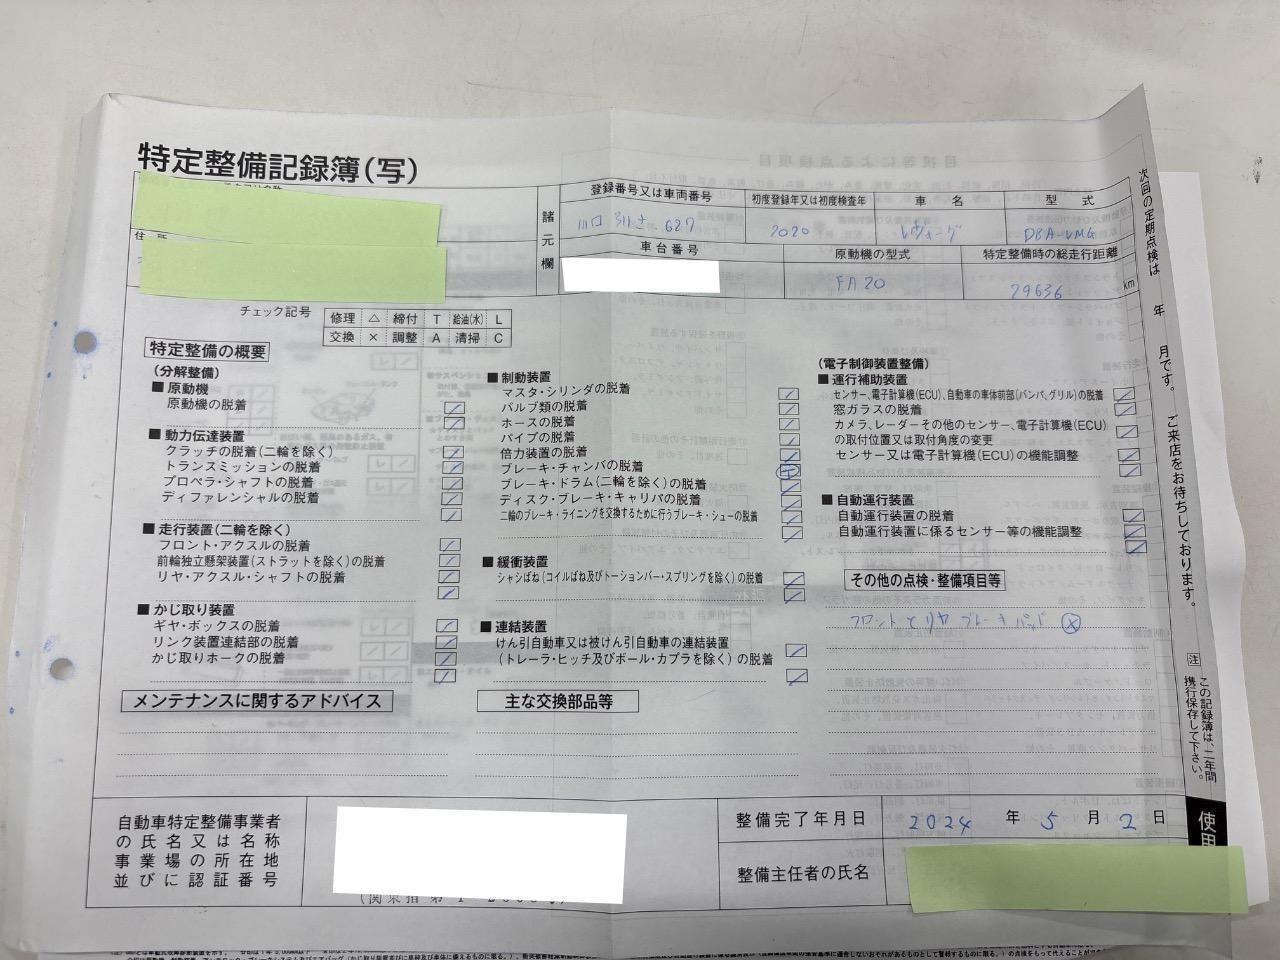 特定整備記録簿(写)
諸元欄
登録番号又は車両番号
初度登録年又は初度検査年
車名
型式
川口 311 さ 627
2020
レヴォーグ
DBA-VMG
住所
車台番号
原動機の型式
特定整備時の総走行距離
FA20
29636 km
チェック記号
修理 △ 締付 T 給油(水) L
交換 × 調整 A 清掃 C
特定整備の概要
(分解整備)
■ 原動機
原動機の脱着
■ 動力伝達装置
クラッチの脱着(二輪を除く)
トランスミッションの脱着
プロペラ・シャフトの脱着
ディファレンシャルの脱着
■ 走行装置(二輪を除く)
フロント・アクスルの脱着
前輪独立懸架装置(ストラットを除く)の脱着
リヤ・アクスル・シャフトの脱着
■ かじ取り装置
ギヤ・ボックスの脱着
リンク装置連結部の脱着
かじ取りホークの脱着
■ 制動装置
マスタ・シリンダの脱着
バルブ類の脱着
ホースの脱着
パイプの脱着
倍力装置の脱着
ブレーキ・チャンバの脱着
ブレーキ・ドラム(二輪を除く)の脱着
ディスク・ブレーキ・キャリパの脱着
二輪のブレーキ・ライニングを交換するために行うブレーキ・シューの脱着
■ 緩衝装置
シャシばね(コイルばね及びトーションバー・スプリングを除く)の脱着
■ 連結装置
けん引自動車又は被けん引自動車の連結装置
(トレーラ・ヒッチ及びボール・カプラを除く)の脱着
(電子制御装置整備)
■ 運行補助装置
センサー、電子計算機(ECU)、自動車の車体前部(バンパ、グリル)の脱着
窓ガラスの脱着
カメラ、レーダーその他のセンサー、電子計算機(ECU)
の取付位置又は取付角度の変更
センサー又は電子計算機(ECU)の機能調整
■ 自動運行装置
自動運行装置の脱着
自動運行装置に係るセンサー等の機能調整
その他の点検・整備項目等
フロントとリヤ ブレーキパッド ×
メンテナンスに関するアドバイス
主な交換部品等
自動車特定整備事業者
の氏名又は名称
事業場の所在地
並びに認証番号
整備完了年月日
2024 年 5 月 2 日
整備主任者の氏名
次回の定期点検は 年 月です。ご来店をお待ちしております。
注 この記録簿は、二年間
携行保存して下さい。
使用